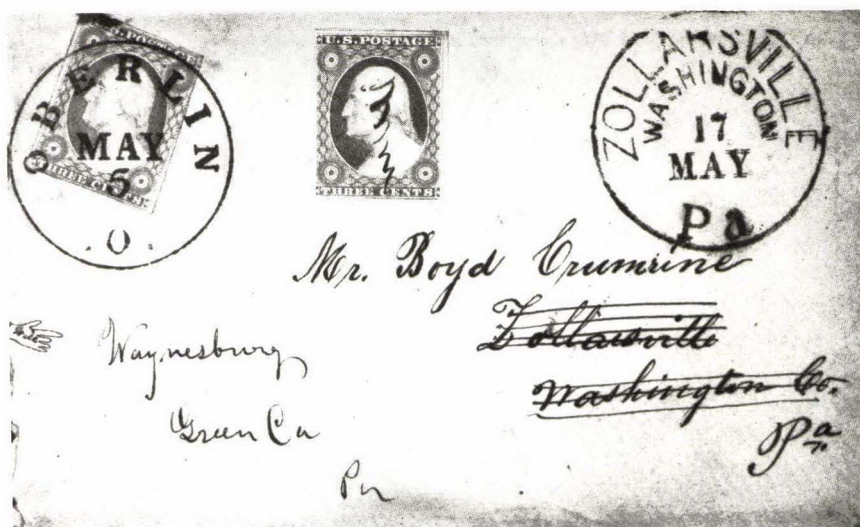 U.S. POSTAGE
THREE CENTS
OBERLIN
MAY
5
.O.
U.S. POSTAGE
THREE CENTS
ZOLLARSVILLE
WASHINGTON
17
MAY
Pa
Mr. Boyd Crumrine
Zollarsville
Washington Co.
Pa
Waynesburg
Green Co
Pa